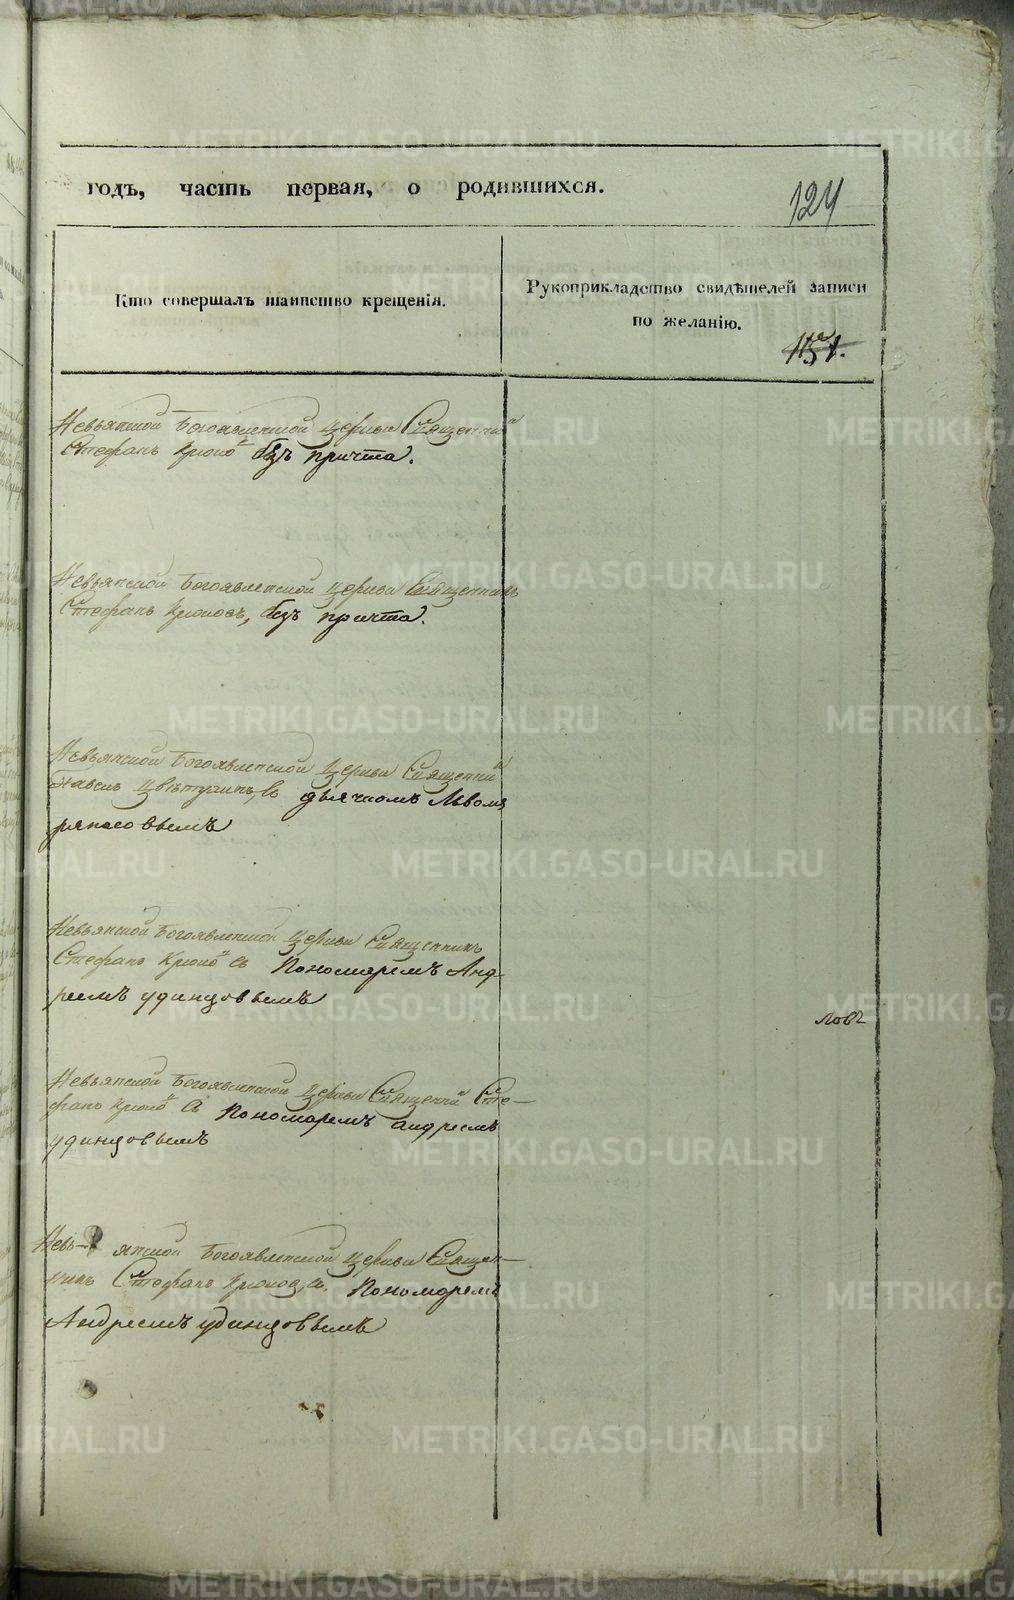 годъ, часть первая, о родившихся.
124
Кто совершалъ таинство крещенія.
Рукоприкладство свидѣтелей записи
по желанію.
Невьянской Богоявленской церкви Священни
Стефанъ безъ причта.
Невьянской Богоявленской церкви Священникъ
Стефанъ безъ причта.
Невьянской Богоявленской церкви Священни
Павелъ съ дьячкомъ Львомъ
Невьянской Богоявленской церкви Священникъ
Стефанъ съ Пономаремъ Анд-
реемъ удинцовымъ
Невьянской Богоявленской церкви Священни Сте-
фанъ съ Пономаремъ андреемъ
удинцовымъ
Невь- янской Богоявленской церкви Священ-
никъ Стефанъ съ Пономаремъ
Андреемъ удинцовымъ
METRIKI.GASO-URAL.RU